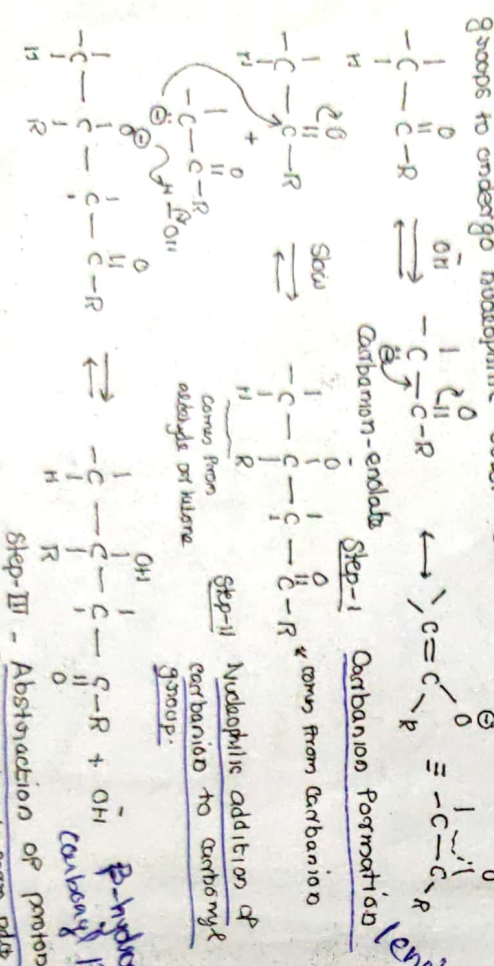 groups to undergo nucleophilic
O
- C - C - R ⇌ - C - C - R ↔ C = C ≡ - C - C
H
ŌH
Carbanion-enolate
Step-I Carbanion Formation
- C - C - R Slow ⇌ - C - C - C - C - R * comes from carbanion
H
+
- C - C - R
comes from
aldehyde or ketone
Step-II Nucleophilic addition of
carbanion to carbonyl
group.
H - OH
- C - C - C - C - R ⇌ - C - C - C - C - R + ŌH
H R
OH
H R O
β-hydro
carbonyl
Step-III - Abstraction of proton